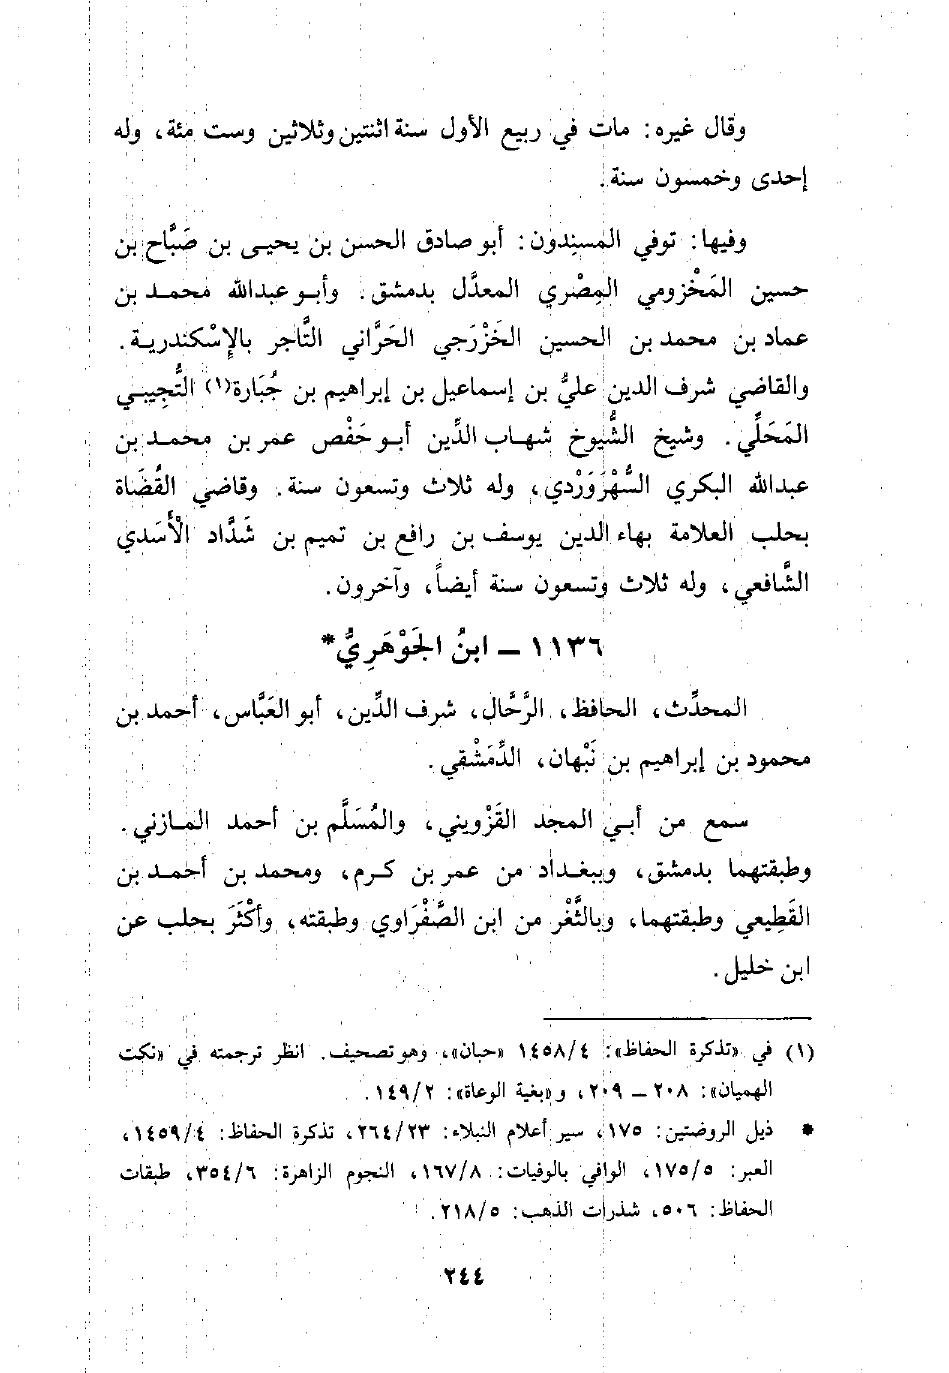 وقال غيره: مات في ربيع الأول سنة اثنتين وثلاثين وست مئة، وله
إحدى وخمسون سنة.
وفيها: توفي المسنِدون: أبو صادق الحسن بن يحيى بن صَبَّاح بن
حسين المَخْزومي المِصْري المعدَّل بدمشق. وأبو عبدالله محمد بن
عماد بن محمد بن الحسين الخَزْرجي الحَرَّاني التَّاجر بالإِسْكندرية.
والقاضي شرف الدين عليُّ بن إسماعيل بن إبراهيم بن جُبَارة(١) التُّجِيبي
المَحَلِّي. وشيخ الشُّيوخ شهاب الدِّين أبو حَفْص عمر بن محمد بن
عبدالله البكري السُّهْرَوَرْدي، وله ثلاث وتسعون سنة. وقاضي القُضَاة
بحلب العلامة بهاء الدين يوسف بن رافع بن تميم بن شَدَّاد الأَسَدي
الشَّافعي، وله ثلاث وتسعون سنة أيضاً، وآخرون.
١١٣٦ - ابنُ الجَوْهَرِيُّ*
المحدِّث، الحافظ، الرَّحَّال، شرف الدِّين، أبو العَبَّاس، أحمد بن
محمود بن إبراهيم بن نَبْهان، الدِّمَشْقي.
سمع من أبي المجد القَزْويني، والمُسَلَّم بن أحمد المازني.
وطبقتهما بدمشق، وببغداد من عمر بن كرم، ومحمد بن أحمد بن
القَطِيعي وطبقتهما، وبالثَّغْر من ابن الصَّفْرَاوي وطبقته، وأكْثَرَ بحلب عن
ابن خليل.
(١) في «تذكرة الحفاظ»: ١٤٥٨/٤ «حبان»، وهو تصحيف. انظر ترجمته في «نكت
الهميان»: ٢٠٨ - ٢٠٩، و«بغية الوعاة»: ١٤٩/٢.
* ذيل الروضتين: ١٧٥، سير أعلام النبلاء: ٢٦٤/٢٣، تذكرة الحفاظ: ١٤٥٩/٤،
العبر: ١٧٥/٥، الوافي بالوفيات: ١٦٧/٨، النجوم الزاهرة: ٣٥٤/٦، طبقات
الحفاظ: ٥٠٦، شذرات الذهب: ٢١٨/٥.
٢٤٤